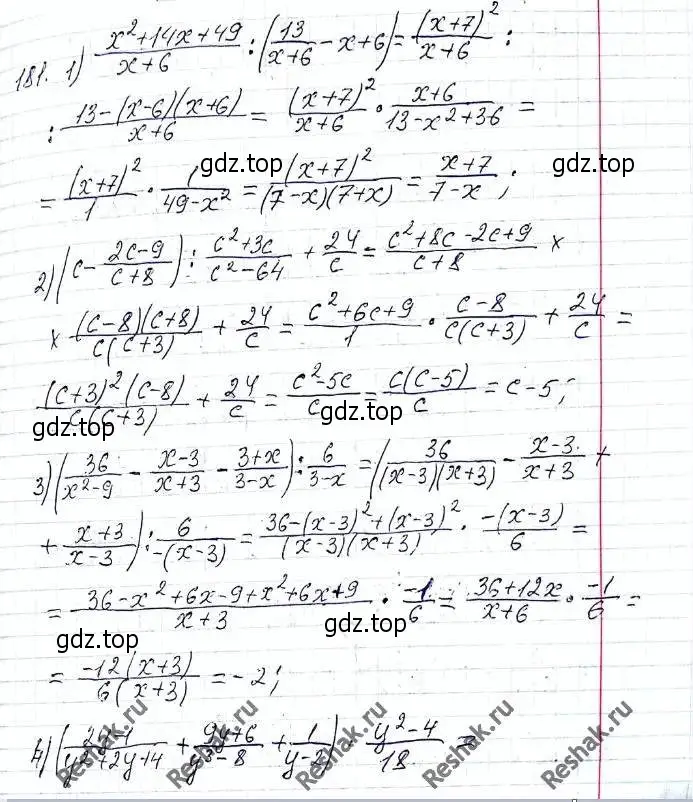 181. 1) (x²+14x+49)/(x+6) : (13/(x+6) - x+6) = (x+7)²/(x+6) :
: (13-(x-6)(x+6))/(x+6) = (x+7)²/(x+6) · (x+6)/(13-x²+36) =
gdz.top gdz.top
= (x+7)²/1 · 1/(49-x²) = (x+7)²/((7-x)(7+x)) = (x+7)/(7-x);
2) (c - (2c-9)/(c+8)) : (c²+3c)/(c²-64) + 24/c = (c²+8c-2c+9)/(c+8) ×
× (c-8)(c+8)/(c(c+3)) + 24/c = (c²+6c+9)/1 · (c-8)/(c(c+3)) + 24/c =
(c+3)²(c-8)/(c(c+3)) + 24/c = (c²-5c)/c = c(c-5)/c = c-5;
gdz.top gdz.top
3) (36/(x²-9) - (x-3)/(x+3) - (3+x)/(3-x)) : 6/(3-x) = (36/((x-3)(x+3)) - (x-3)/(x+3) +
+ (x+3)/(x-3)) : 6/(-(x-3)) = (36-(x-3)²+(x-3)²)/((x-3)(x+3)) · -(x-3)/6 =
= (36-x²+6x-9+x²+6x+9)/(x+3) · -1/6 = (36+12x)/(x+6) · -1/6 =
gdz.top gdz.top
= -12(x+3)/(6(x+3)) = -2;
4) ( /(y²+2y+4) + (9y+6)/(y³-8) + 1/(y-2)) · (y²-4)/18 =
Reshak.ru Reshak.ru Reshak.ru Reshak.ru